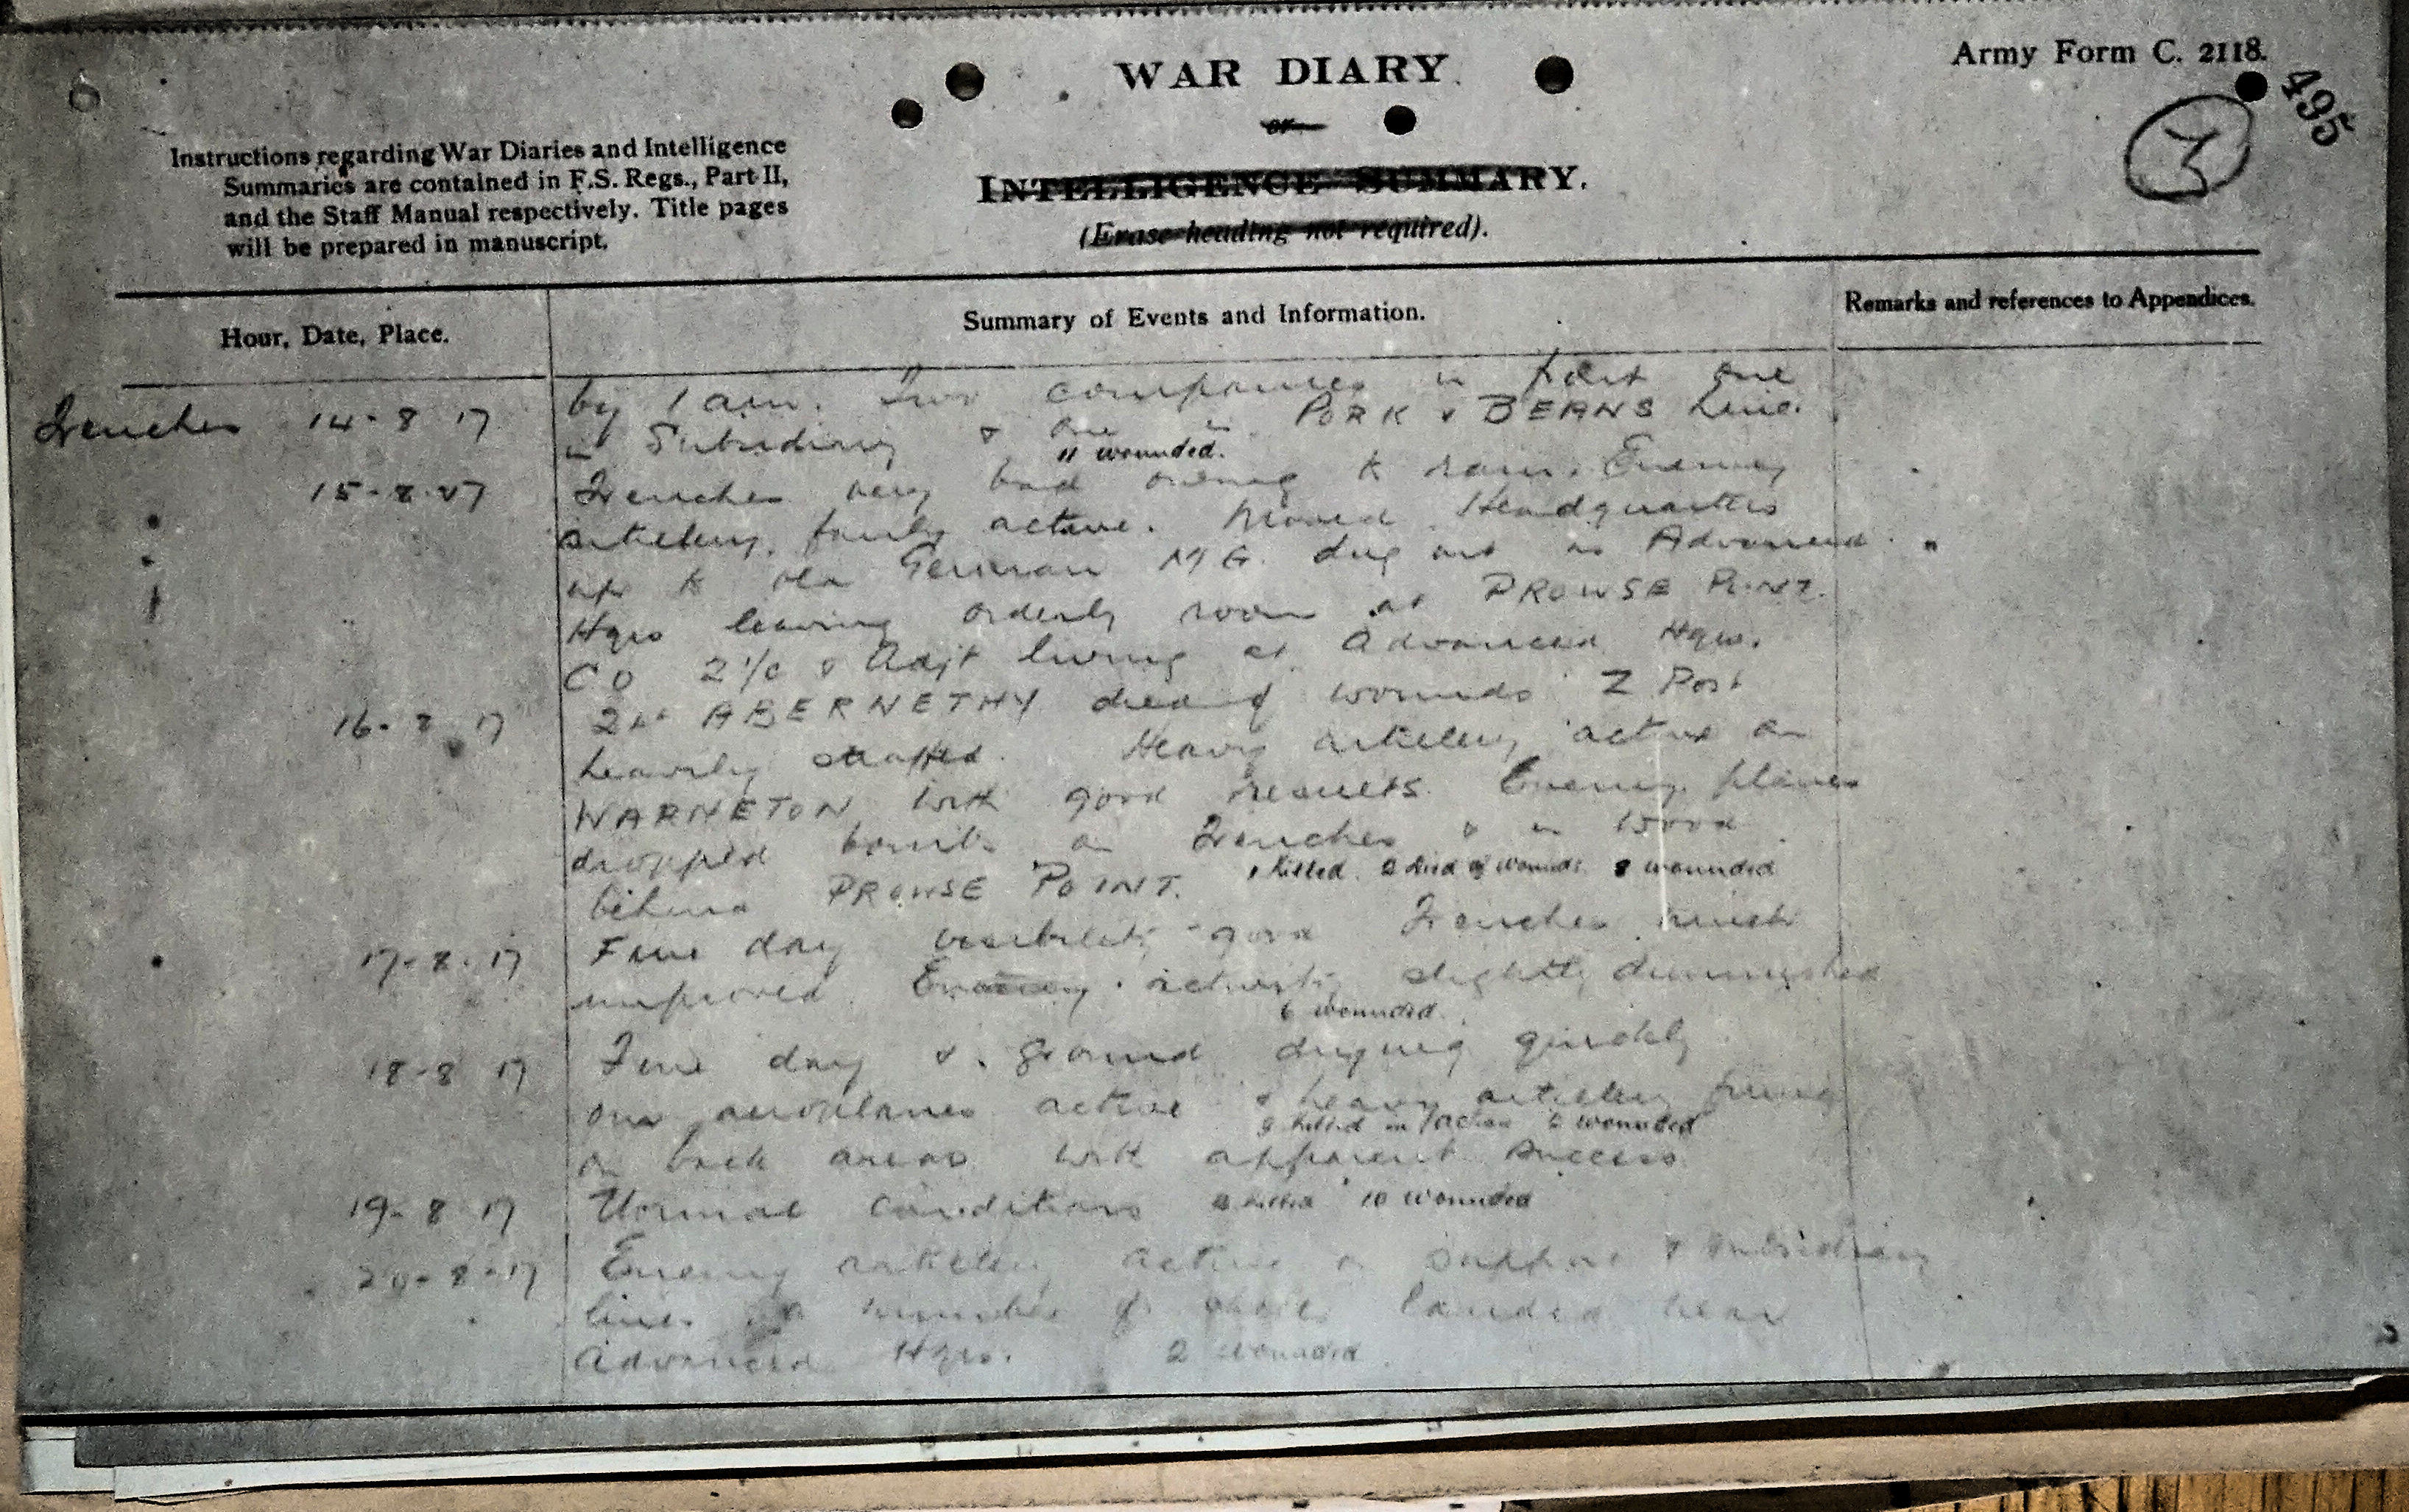 WAR DIARY
or
INTELLIGENCE SUMMARY.
(Erase heading not required).
Army Form C. 2118.
495
3
Instructions regarding War Diaries and Intelligence
Summaries are contained in F.S. Regs., Part II,
and the Staff Manual respectively. Title pages
will be prepared in manuscript.
Hour, Date, Place.
Summary of Events and Information.
Remarks and references to Appendices.
Trenches 14-8 17 by 1 am. Two companies in front one
in Subsidiary & one in PORK & BEANS Line.
11 wounded.
15-8-17 Trenches very bad owing to rain. Enemy
artillery fairly active. Moved Headquarters
up to old German MG. dug out as Advanced
Hqrs leaving orderly room at PROWSE POINT.
CO 2i/c & Adjt living at Advanced Hqrs.
16-8 17 2Lt ABERNETHY died of wounds Z Post
heavily straffed. Heavy artillery active on
WARNETON with good results. Enemy planes
dropped bombs on Trenches & in wood
behind PROWSE POINT. 1 killed 2 died of wounds 8 wounded
17-8-17 Fine day visibility good Trenches much
improved. Enemy activity slightly diminished
6 wounded.
18-8 17 Fine day & ground drying quickly
our aeroplanes active & heavy artillery firing
killed in action 6 wounded
on back areas with apparent success
19-8 17 Normal conditions killed 10 wounded
20-8-17 Enemy artillery active on support & subsidiary
lines a number of shells landed near
Advanced Hqrs. 2 wounded.